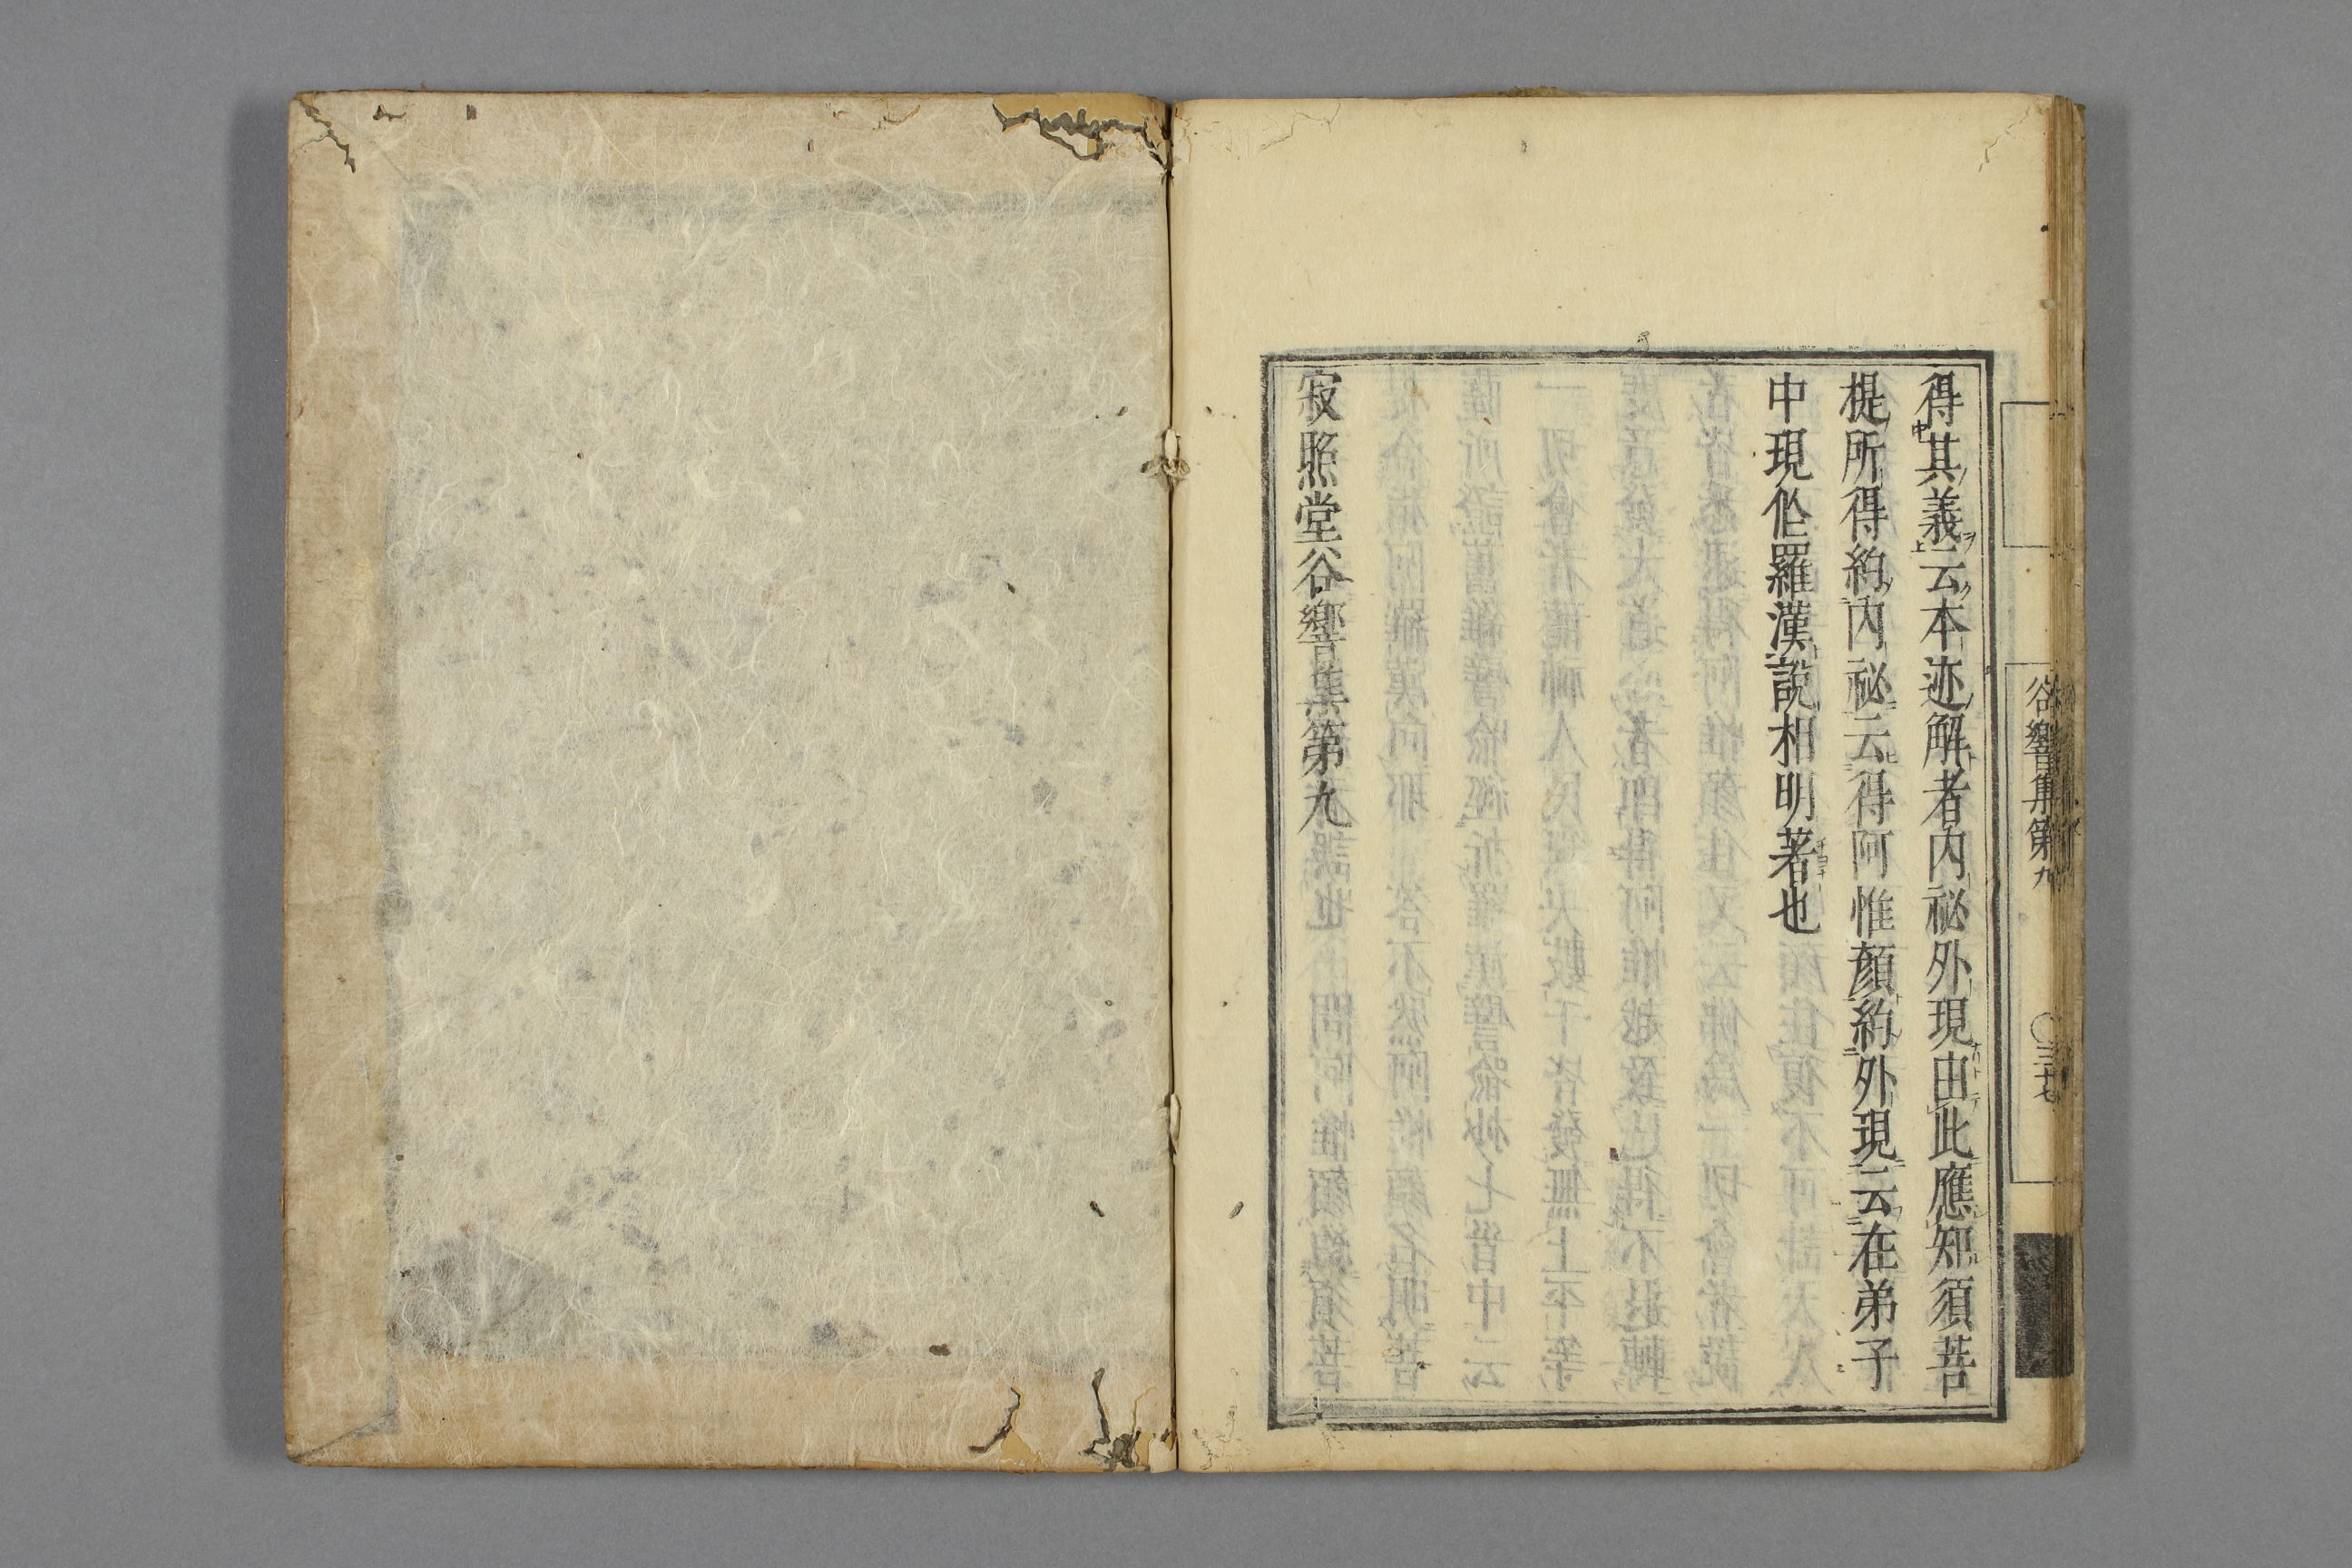 得其義云本迹解者内祕外現由此應知須菩
提所得約内祕云得阿惟顔約外現云在弟子
中現作羅漢説相明著也
寂照堂谷響集第九
谷響集第九
〇三十七